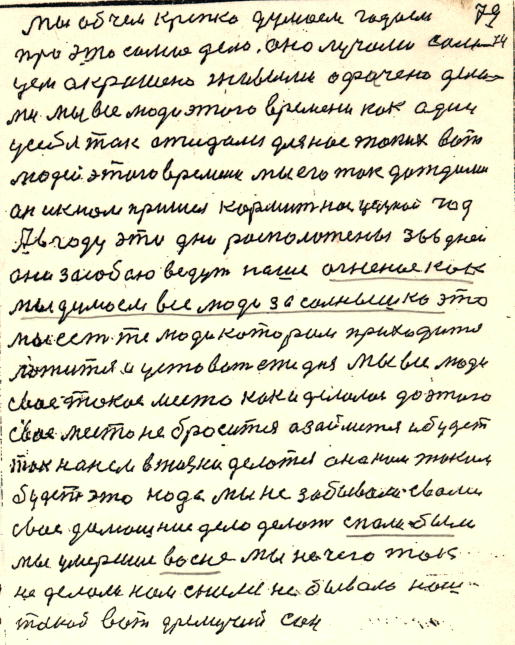 мы обчем крепко думаем гадаем 79
про это самое дело. оно лучами солн- 74
цем окрашено живыми охрачено дела-
ми мы все люди этого времени как один
усебя так ожидали для нас таких вот
людей этого времени мы его так дождалии
он и к нам пришел кормит нас целый год
А вгоду эти дни расположены 366 дней
они за собою ведут наше огненое как
мы думаем все люди за солнышко это
мы есть те люди котором приходится
ложится и уставать эти дня мы все люди
свае такое место как и делалос до этого
свое место не бросится а займется и будет
так на нем в жизни делатся она нам таким
будет это нада мы не забывали своим
свое дамошние дело делат спали были
мы умершие восне мы не чего так
не делали нам снили не бывало наш
такой вот дремучий сон